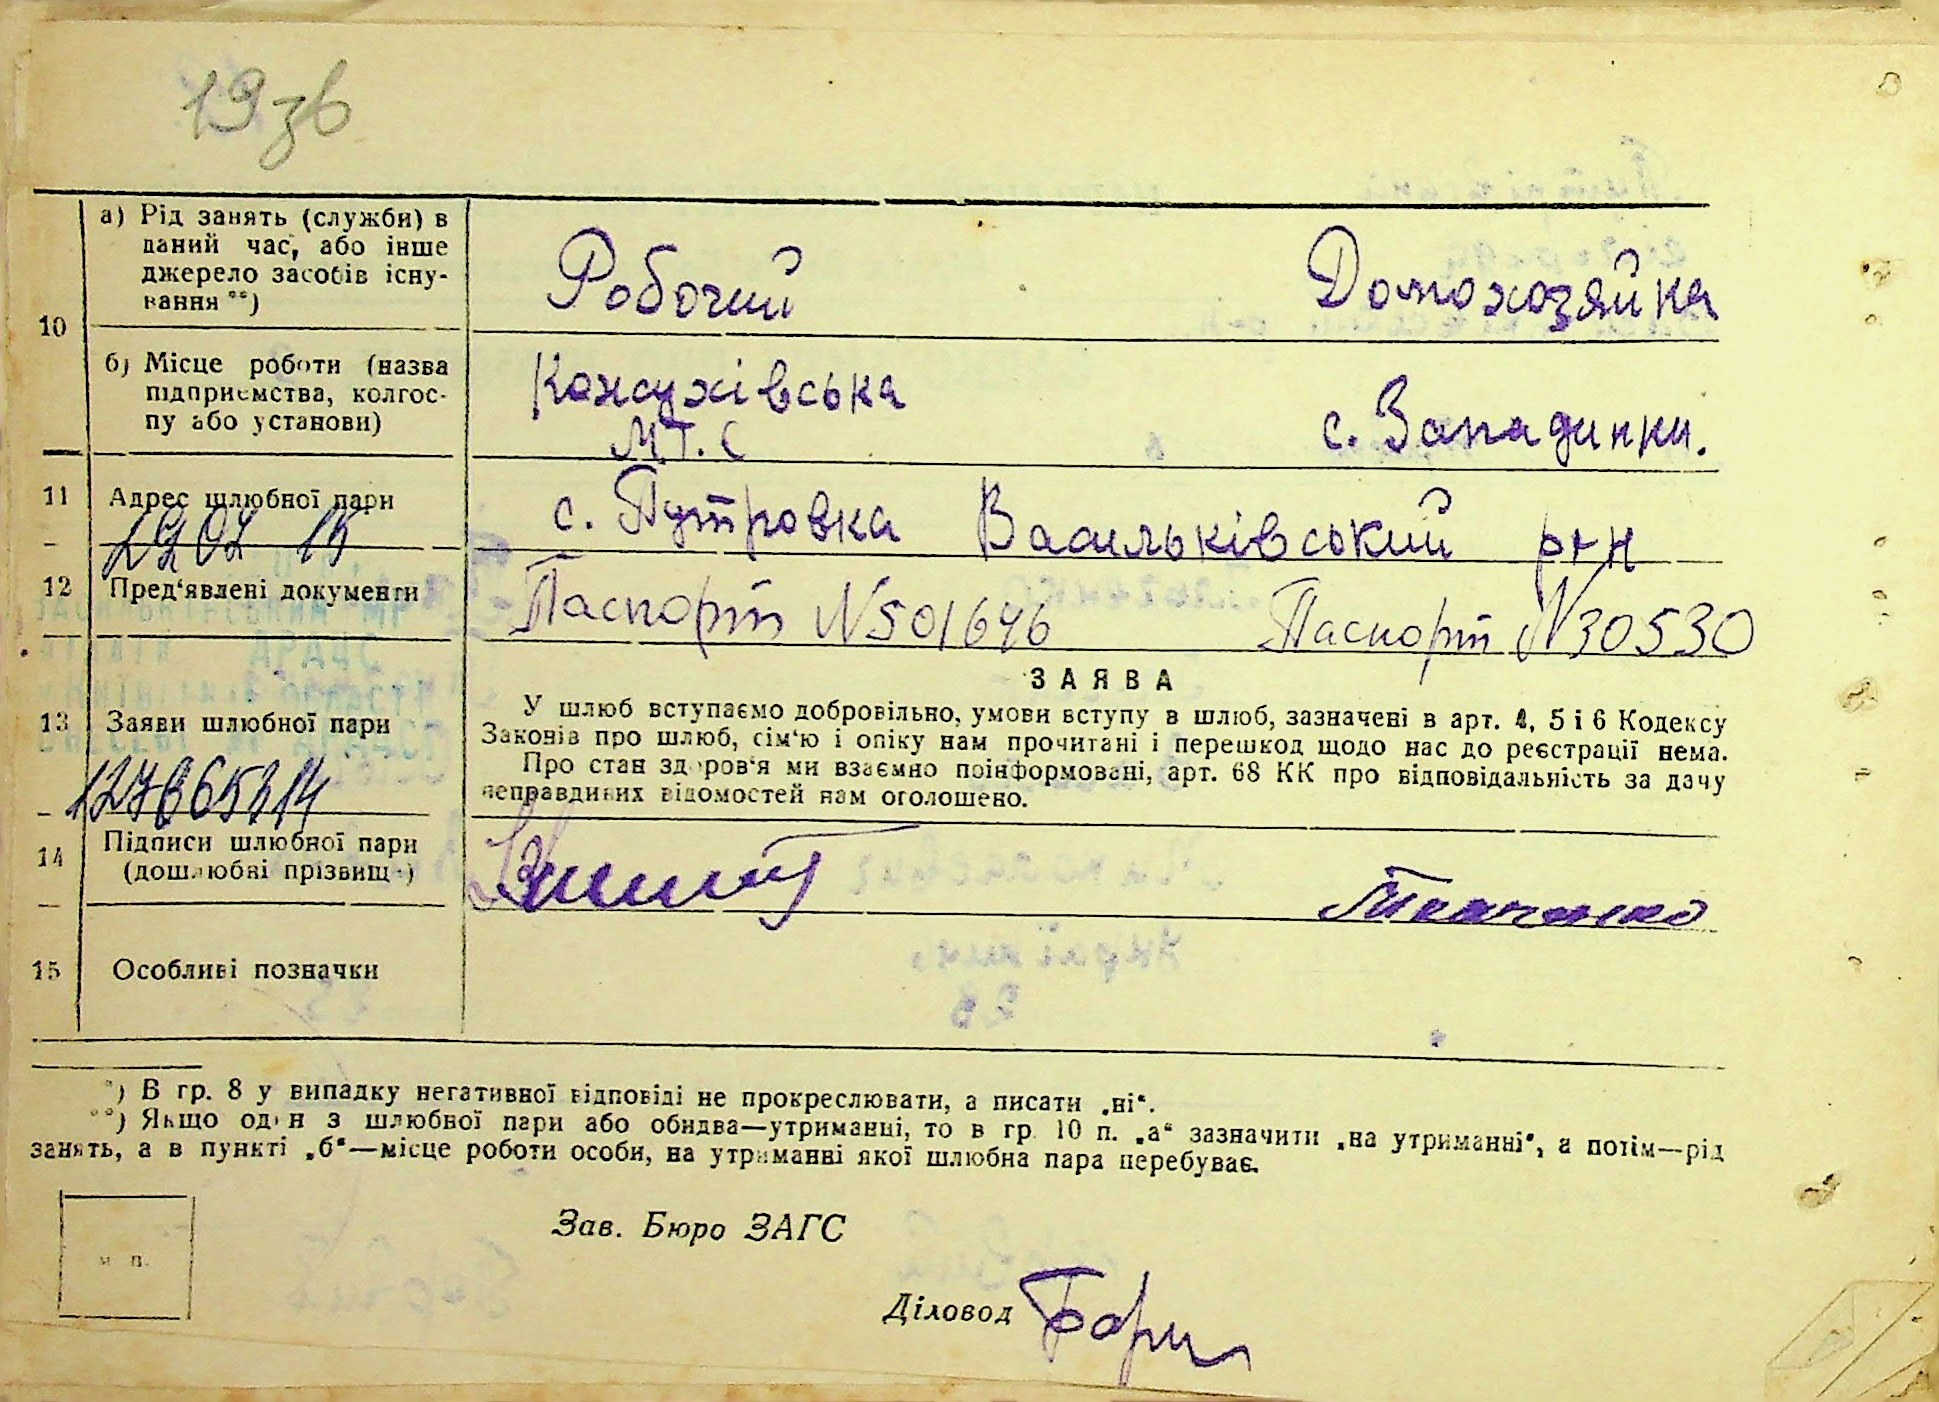 19 зв
10
а) Рід занять (служби) в
даний час, або інше
джерело засобів існу-
вання **)
Робочий
Домохозяйка
б) Місце роботи (назва
підприємства, колгос-
пу або установи)
Кожухівська
МТ.С
с. Западинки.
11
Адрес шлюбної пари
с. Путровка Васильківський р-н
2902 15
12
Пред'явлені документи
Паспорт N 501646
Паспорт N 30530
13
Заяви шлюбної пари
ЗАЯВА
У шлюб вступаємо добровільно, умови вступу в шлюб, зазначені в арт. 4, 5 і 6 Кодексу
Законів про шлюб, сім'ю і опіку нам прочитані і перешкод щодо нас до реєстрації нема.
Про стан здоров'я ми взаємно поінформовані, арт. 68 КК про відповідальність за дачу
неправдивих відомостей нам оголошено.
14
Підписи шлюбної пари
(дошлюбні прізвища)
Ткаченко
15
Особливі позначки
*) В гр. 8 у випадку негативної відповіді не прокреслювати, а писати „ні“.
**) Якщо один з шлюбної пари або обидва—утриманці, то в гр. 10 п. „а“ зазначити „на утриманні“, а потім—рід
занять, а в пункті „б“—місце роботи особи, на утриманні якої шлюбна пара перебуває.
м. п.
Зав. Бюро ЗАГС
Діловод